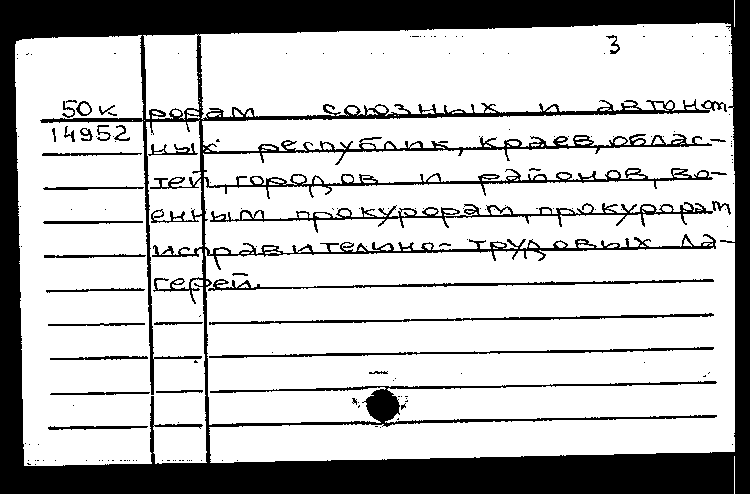 3
50к рорам союзных и автоном-
14952 ных республик, краев, облас-
тей, городов и районов, во-
енным прокурорам, прокурорам
исправительно-трудовых ла-
герей.